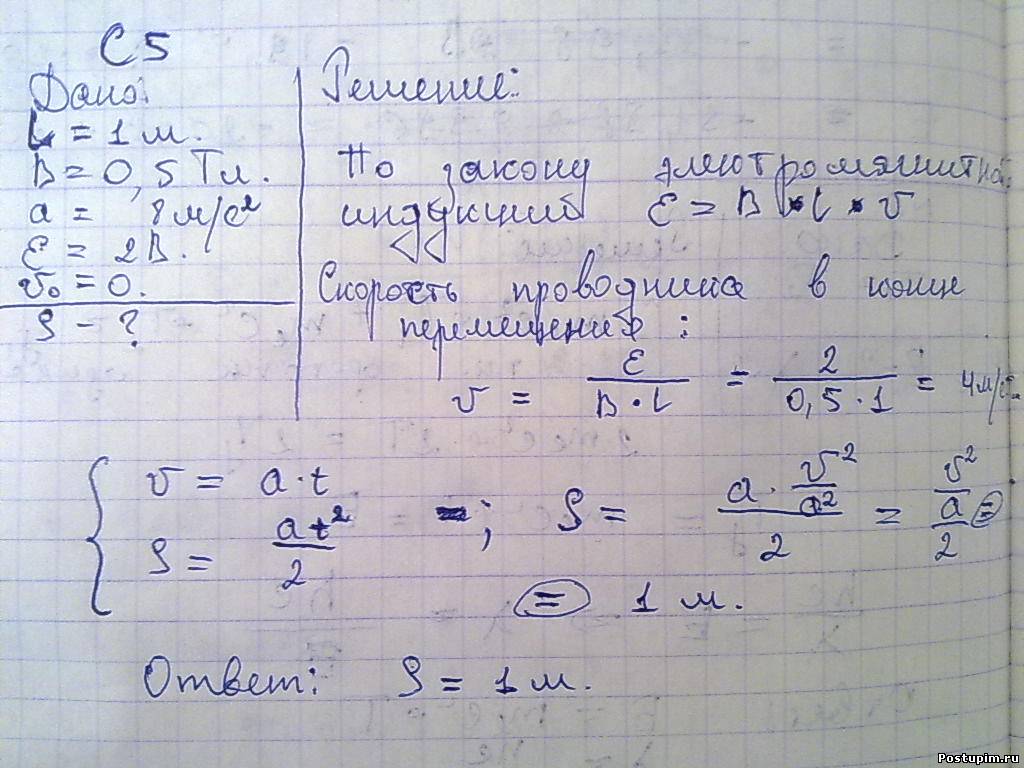 С5
Дано:
L = 1 м.
B = 0,5 Тл.
a = 8 м/с²
ε = 2 В.
v₀ = 0.
S - ?
Решение:
По закону электромагнитной
индукции ε = B · l · v
Скорость проводника в конце
перемещения :
v = ε / (B · l) = 2 / (0,5 · 1) = 4 м/с.
{ v = a · t
S = at² / 2 ; S = (a · v²/a²) / 2 = (v²/a) / 2 =
= 1 м.
Ответ: S = 1 м.
Postupim.ru